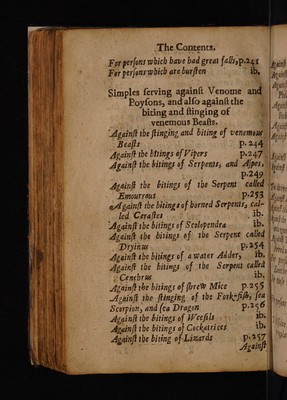 The Contents.
For perſons which have had great falls, p.241
For perſons which are burſten ib.
Simples ſerving againſt Venome and
Poyſons, and alſo againſt the
biting and ſtinging of
venemous Beaſts.
Againſt the ſtinging and biting of venemous
Beaſts p. 244
Againſt the bitings of Vipers p.247
Againſt the bitings of Serpents, and Aſpes.
p.249
Againſt the bitings of the Serpent called
Emourrous p.253
Againſt the bitings of horned Serpents, cal-
led Ceraſtes ib.
Againſt the bitings of Scolopendra ib.
Againſt the bitings of the Serpent called
Dryinus p.254
Againſt the bitings of a water Adder, ib.
Againſt the bitings of the Serpent called
Cenebrus ib.
Againſt the bitings of ſhrew Mice p.255
Againſt the ſtinging of the Fork-fiſh, ſea
Scorpion, and ſea Dragon p.256
Againſt the bitings of Weeſils ib.
Againſt the bitings of Cockatrices ib.
Againſt the biting of Lizards p.257
Againſt